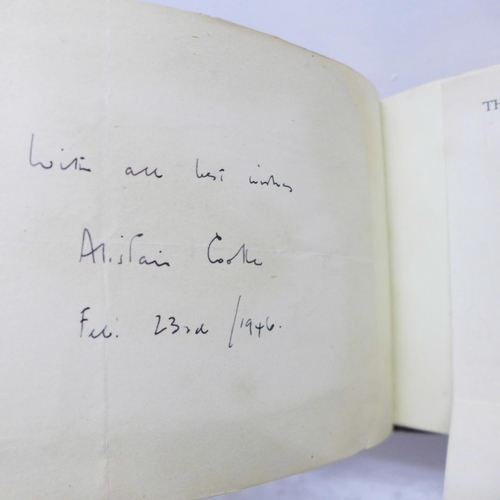 With all best wishes
Alistair Cooke
Feb. 23rd / 1946.
TH